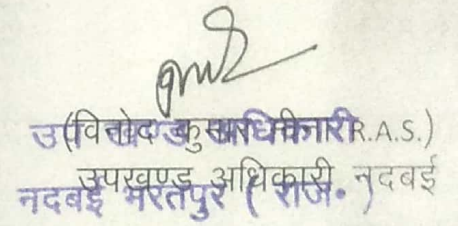 (विनोद कुमार मीना R.A.S.)
उपखण्ड अधिकारी
उपखण्ड अधिकारी, नदबई
नदबई भरतपुर ( राज॰ )